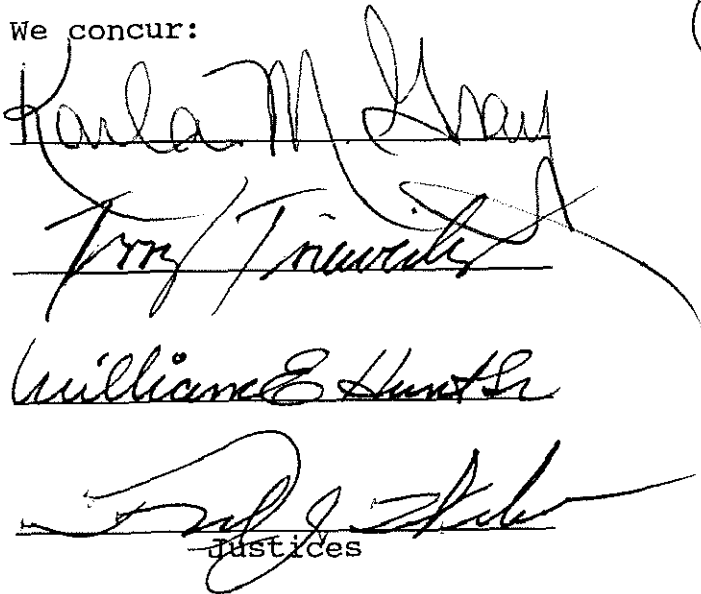 We concur:
Karla M. Gray
Terry Trieweiler
William E Hunt Sr
Justices